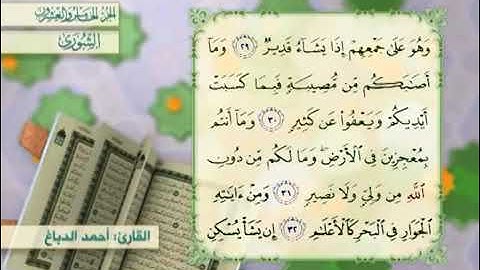 الجزء الخامس والعشرون
الشورى
وَهُوَ عَلَىٰ جَمْعِهِمْ إِذَا يَشَاءُ قَدِيرٌ ﴿٢٩﴾ وَمَا
أَصَابَكُم مِّن مُّصِيبَةٍ فَبِمَا كَسَبَتْ
أَيْدِيكُمْ وَيَعْفُوا عَن كَثِيرٍ ﴿٣٠﴾ وَمَا أَنتُم
بِمُعْجِزِينَ فِي الْأَرْضِ وَمَا لَكُم مِّن دُونِ
اللَّهِ مِن وَلِيٍّ وَلَا نَصِيرٍ ﴿٣١﴾ وَمِنْ آيَاتِهِ
الْجَوَارِ فِي الْبَحْرِ كَالْأَعْلَامِ ﴿٣٢﴾ إِن يَشَأْ يُسْكِنِ
القارئ: أحمد الدباغ